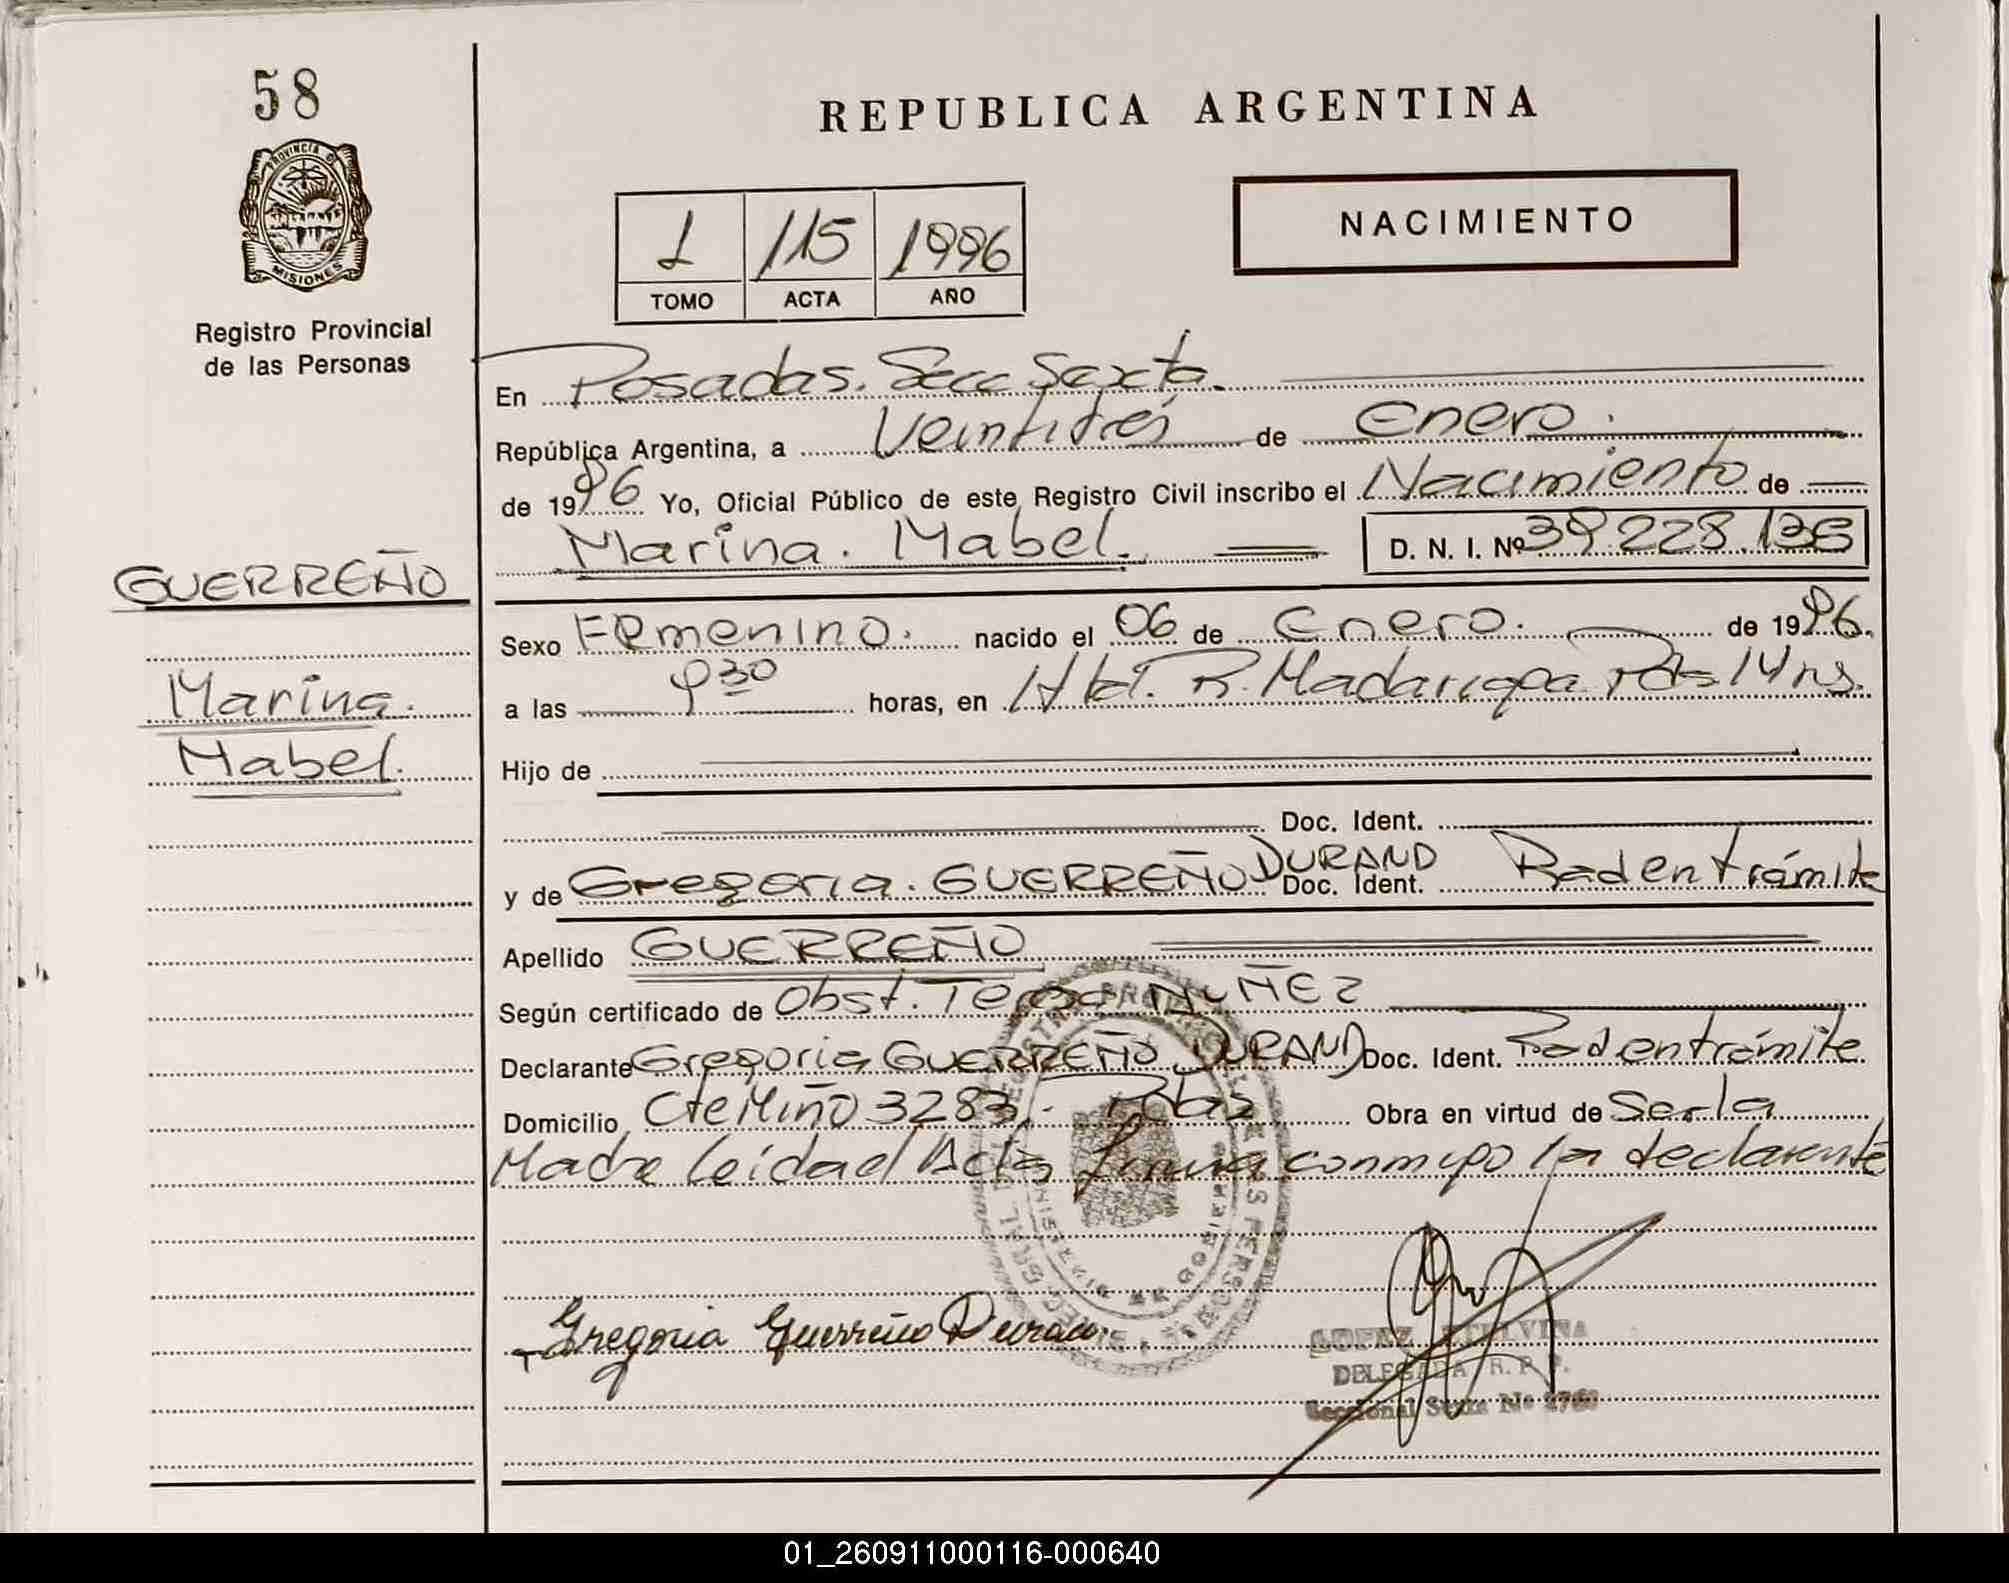 58
REPUBLICA ARGENTINA
PROVINCIA DE
MISIONES
Registro Provincial
de las Personas
1 115 1996
TOMO ACTA AÑO
NACIMIENTO
En Posadas. Secc Sexta.
República Argentina, a Veintitrés de Enero.
de 1996 Yo, Oficial Público de este Registro Civil inscribo el Nacimiento de
Marina. Mabel. D. N. I. Nº 39.228.136
GUERREÑO
Marina.
Mabel.
Sexo Femenino. nacido el 06 de Enero. de 1996.
a las 9 30 horas, en R. Madariaga Pdas Mns.
Hijo de
Doc. Ident.
y de Gregoria. GUERREÑO DURAND Doc. Ident. Rad en trámite
Apellido GUERREÑO
Según certificado de Obst. Teresa NUÑEZ
Declarante Gregoria GUERREÑO DURAND Doc. Ident. Rad en trámite
Domicilio Cte Miño 3283.- Pdas Obra en virtud de Ser la
Madre leída el Acta firma conmigo la declarante
Gregoria Guerreño Duran
LOPEZ ETELVINA
DELEGADA R. P. P.
Seccional Sexta Nº
01_260911000116-000640